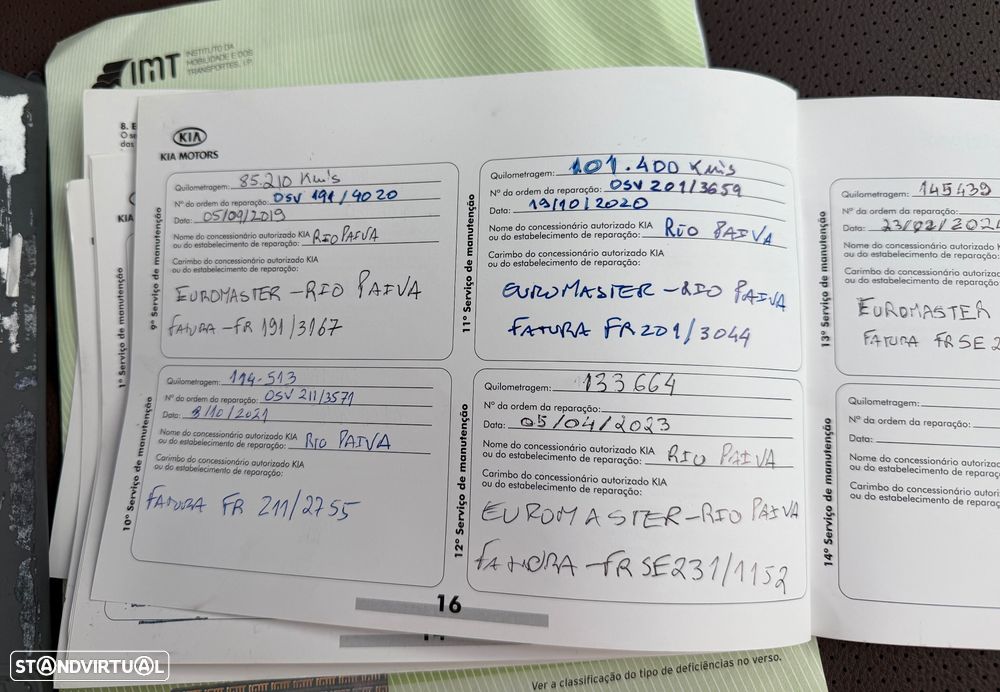 IMT INSTITUTO DA
MOBILIDADE E DOS
TRANSPORTES, I.P.
8. E
O se
das
KIA
KIA MOTORS
KIA
1º Serviço de manutenção
9º Serviço de manutenção
Quilometragem: 85.210 Km's
Nº da ordem da reparação: OSV 191/4020
Data: 05/09/2019
Nome do concessionário autorizado KIA
ou do estabelecimento de reparação: RIO PAIVA
Carimbo do concessionário autorizado KIA
ou do estabelecimento de reparação:
EUROMASTER - RIO PAIVA
FATURA - FR 191/3167
10º Serviço de manutenção
Quilometragem: 114.513
Nº da ordem da reparação: OSV 211/3571
Data: 8/10/2021
Nome do concessionário autorizado KIA
ou do estabelecimento de reparação: RIO PAIVA
Carimbo do concessionário autorizado KIA
ou do estabelecimento de reparação:
FATURA FR 211/2755
11º Serviço de manutenção
Quilometragem: 101.400 Km's
Nº da ordem da reparação: OSV 201/3659
Data: 19/10/2020
Nome do concessionário autorizado KIA
ou do estabelecimento de reparação: RIO PAIVA
Carimbo do concessionário autorizado KIA
ou do estabelecimento de reparação:
EUROMASTER - RIO PAIVA
FATURA FR 201/3044
12º Serviço de manutenção
Quilometragem: 133664
Nº da ordem da reparação:
Data: 05/04/2023
Nome do concessionário autorizado KIA
ou do estabelecimento de reparação: RIO PAIVA
Carimbo do concessionário autorizado KIA
ou do estabelecimento de reparação:
EUROMASTER - RIO PAIVA
FATURA - FR SE231/1152
16
13º Serviço de manutenção
Quilometragem: 145439
Nº da ordem da reparação:
Data: 23/02/2024
Nome do concessionário autorizado
ou do estabelecimento de reparação:
Carimbo do concessionário autorizado
ou do estabelecimento de reparação:
EUROMASTER
FATURA FR SE 2
14º Serviço de manutenção
Quilometragem:
Nº da ordem da reparação:
Data:
Nome do concessionário autoriza
ou do estabelecimento de repara
Carimbo do concessionário autoriz
ou do estabelecimento de reparaç
STANDVIRTUAL
Ver a classificação do tipo de deficiências no verso.